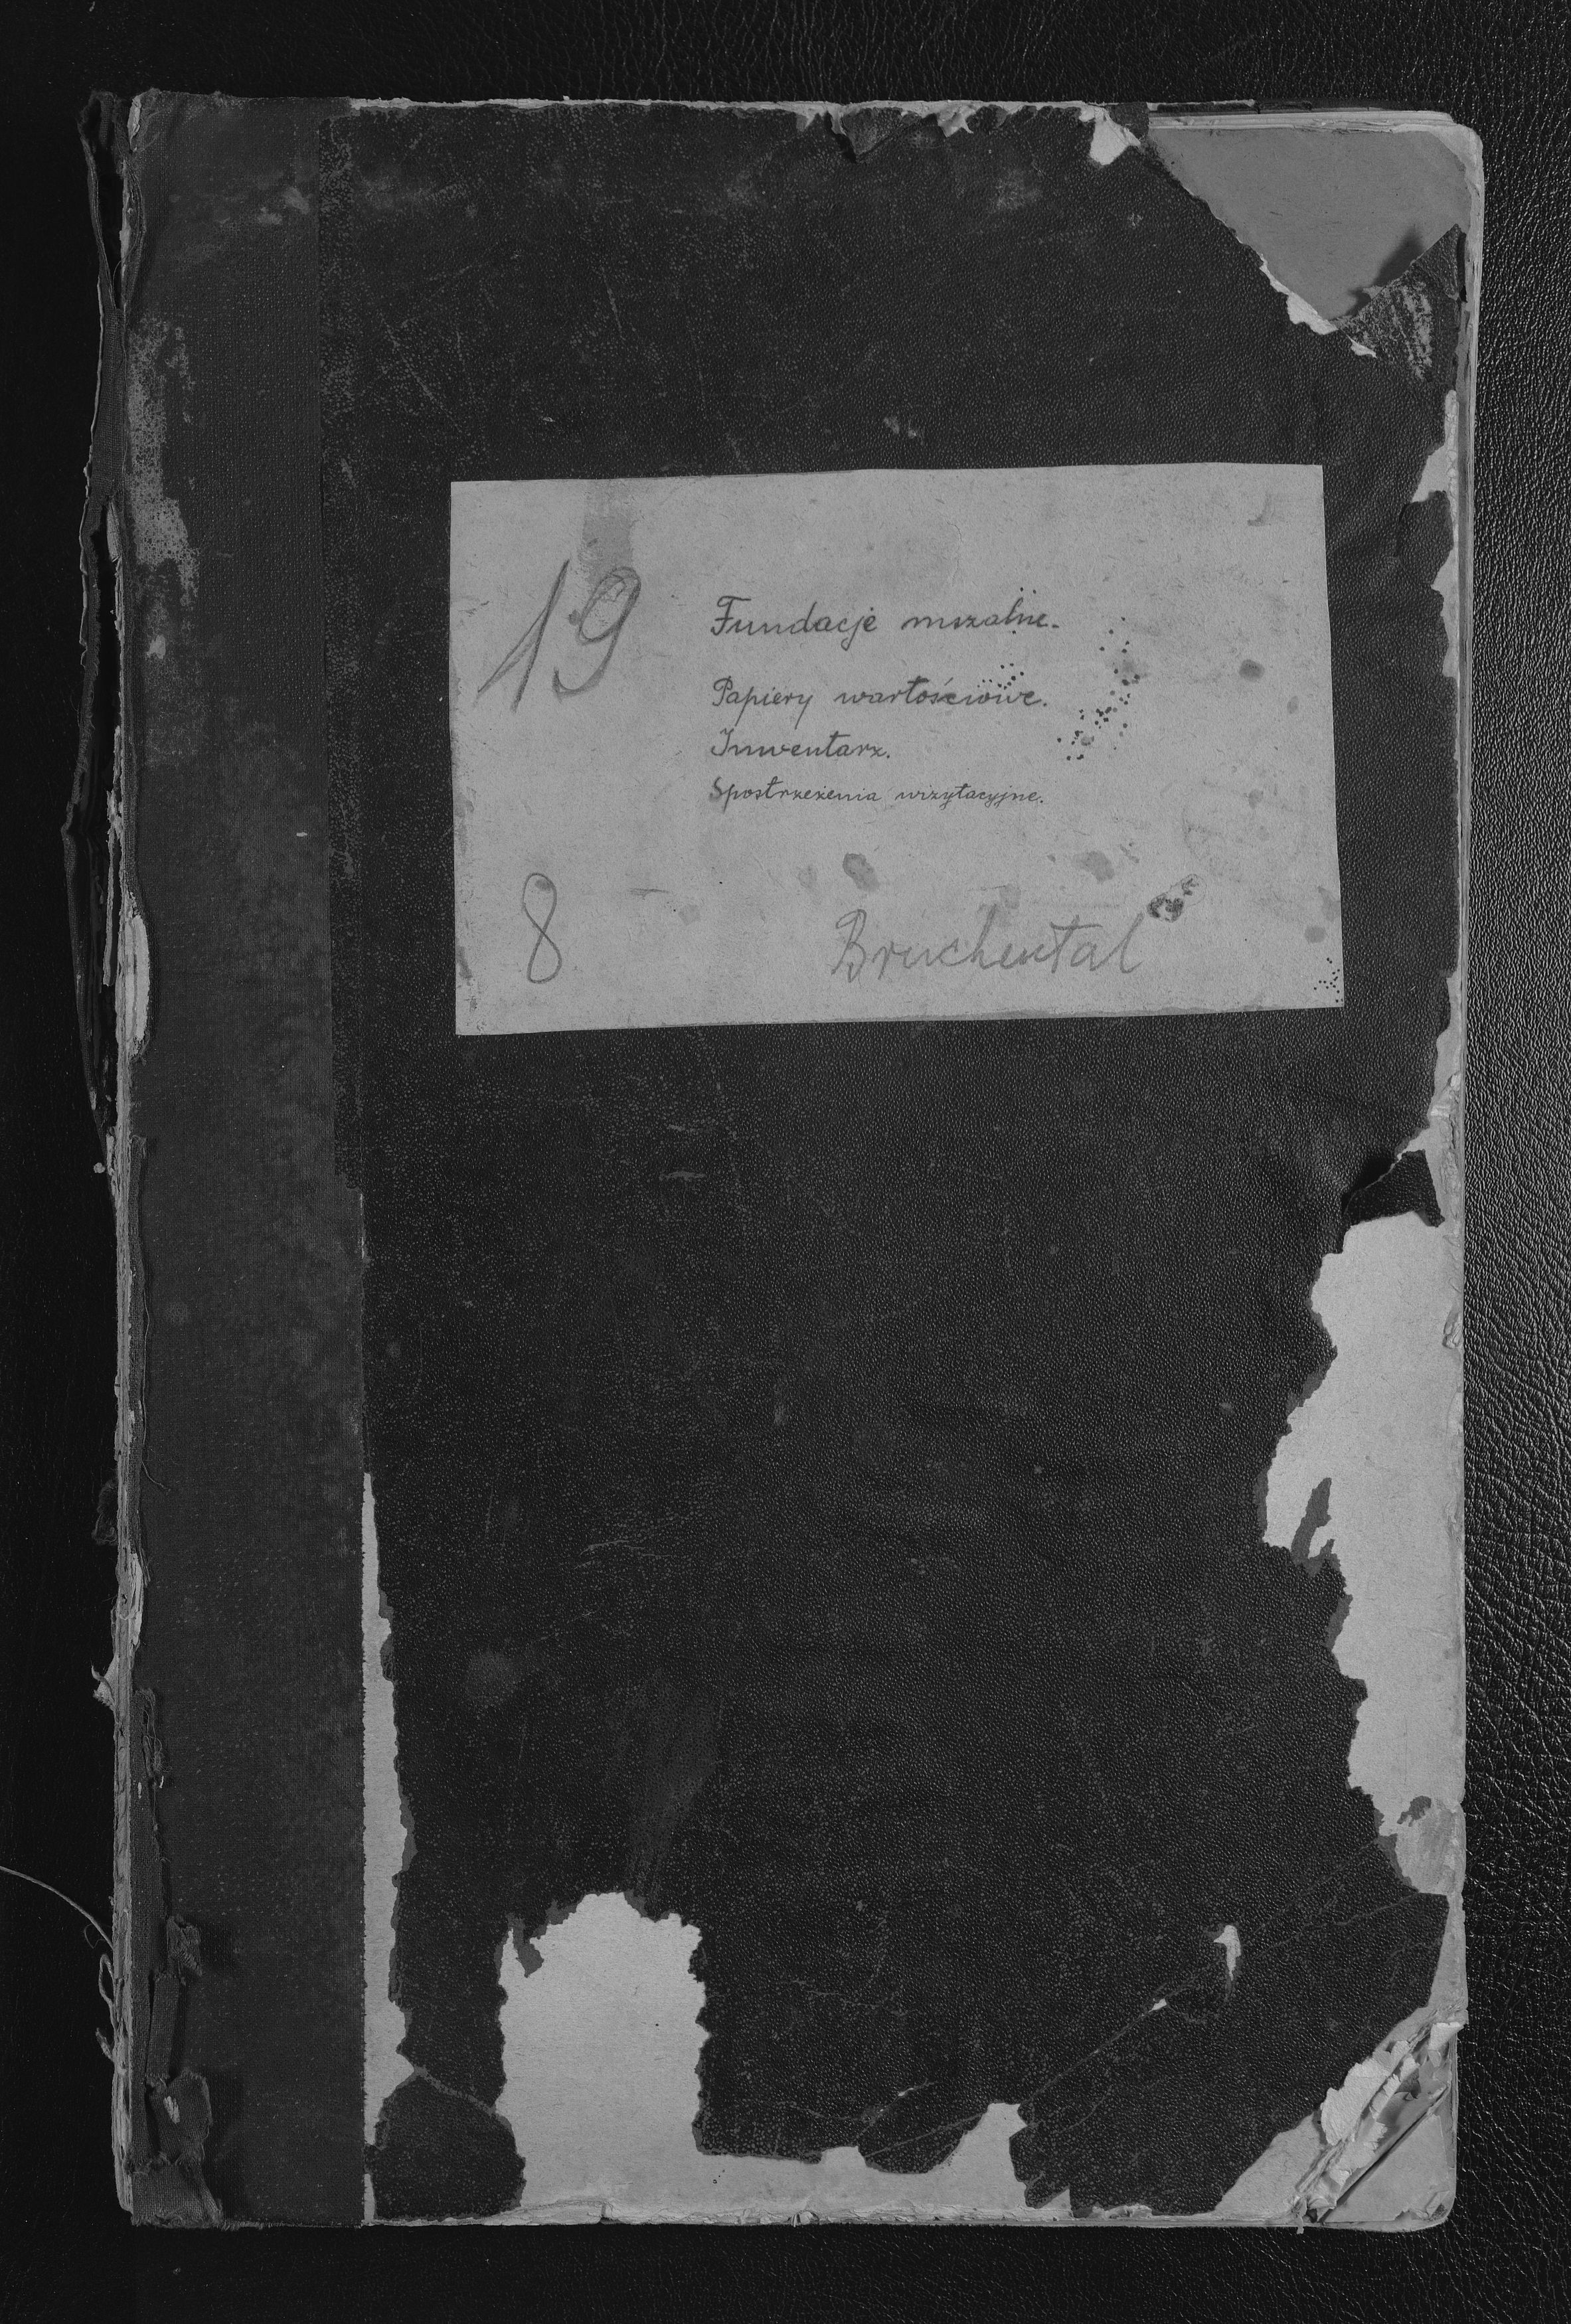 19
Fundacje mszalne.
Papiery wartościowe.
Inwentarz.
Spostrzeżenia wizytacyjne.
8
Bruchental